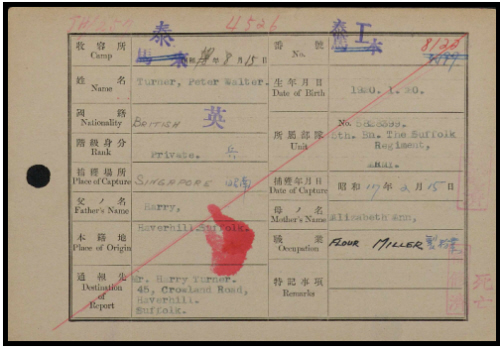 4526
收容所 Camp 泰 馬來 昭和 年 8月 15日
番號 No. 泰工
8122
姓名 Name Turner, Peter Walter.
生年月日 Date of Birth 1920.1.20.
國籍 Nationality BRITISH 英
階級身分 Rank Private. 兵
所屬部隊 Unit No.
5th. Bn. The Suffolk
Regiment,
捕獲場所 Place of Capture SINGAPORE 昭南
捕獲年月日 Date of Capture 昭和 17年 2月 15日
父ノ名 Father's Name Harry,
母ノ名 Mother's Name Elizabeth Ann,
本籍地 Place of Origin Haverhill. Suffolk.
職業 Occupation FLOUR MILLER
通報先 Destination of Report Mr. Harry Turner.
45, Crowland Road,
Haverhill.
Suffolk.
特記事項 Remarks
死亡